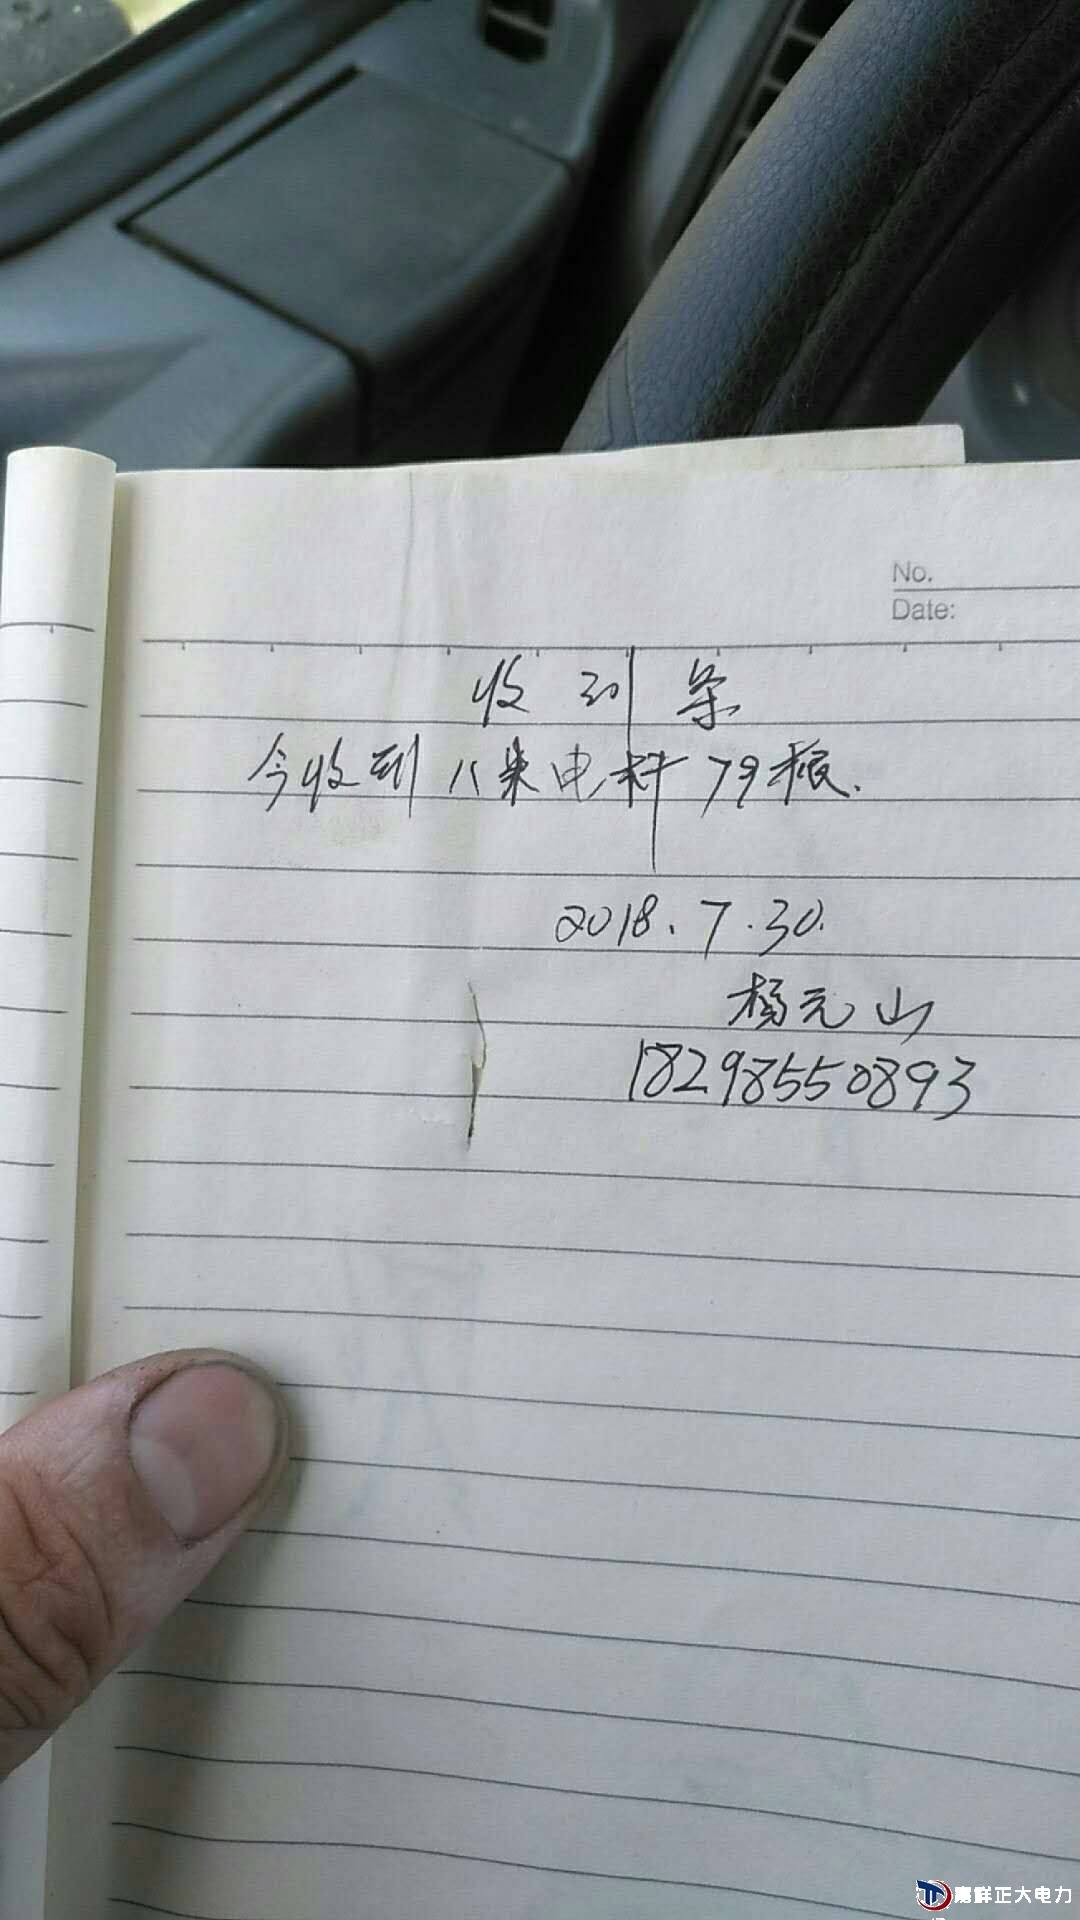 No.
Date:
收到条
今收到八米电杆79根.
2018.7.30.
杨元山
18298550893
嘉祥正大电力